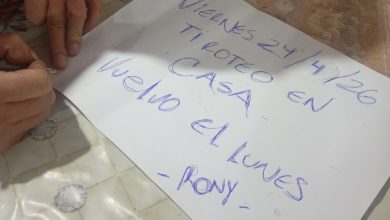 VIERNES 24/4/26
TIROTEO EN
CASA
VUELVO EL LUNES
- RONY -